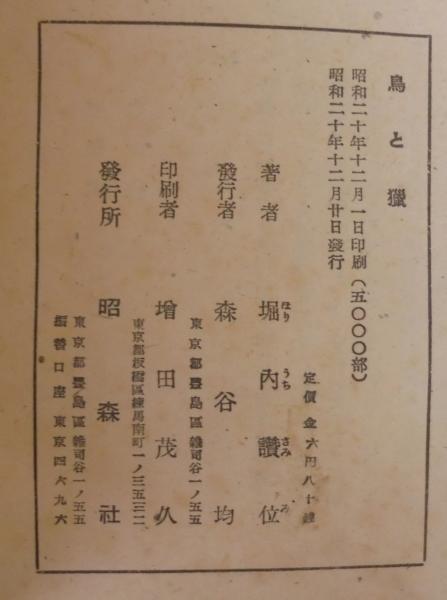 鳥と獵
昭和二十年十二月一日印刷（五〇〇〇部）
昭和二十年十二月廿日發行
定價 金六円八十錢
著者 堀內讚位
ほり うち さみ ゐ
發行者 森谷均
東京都豊島區雜司谷一ノ五五
印刷者 增田茂久
東京都板橋區練馬南町一ノ三五三二
發行所 昭森社
東京都豊島區雜司谷一ノ五五
振替口座東京四六九六